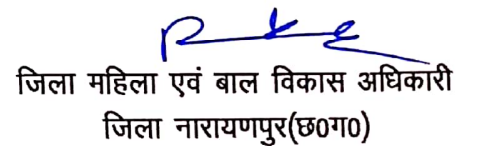 जिला महिला एवं बाल विकास अधिकारी
जिला नारायणपुर(छ०ग०)